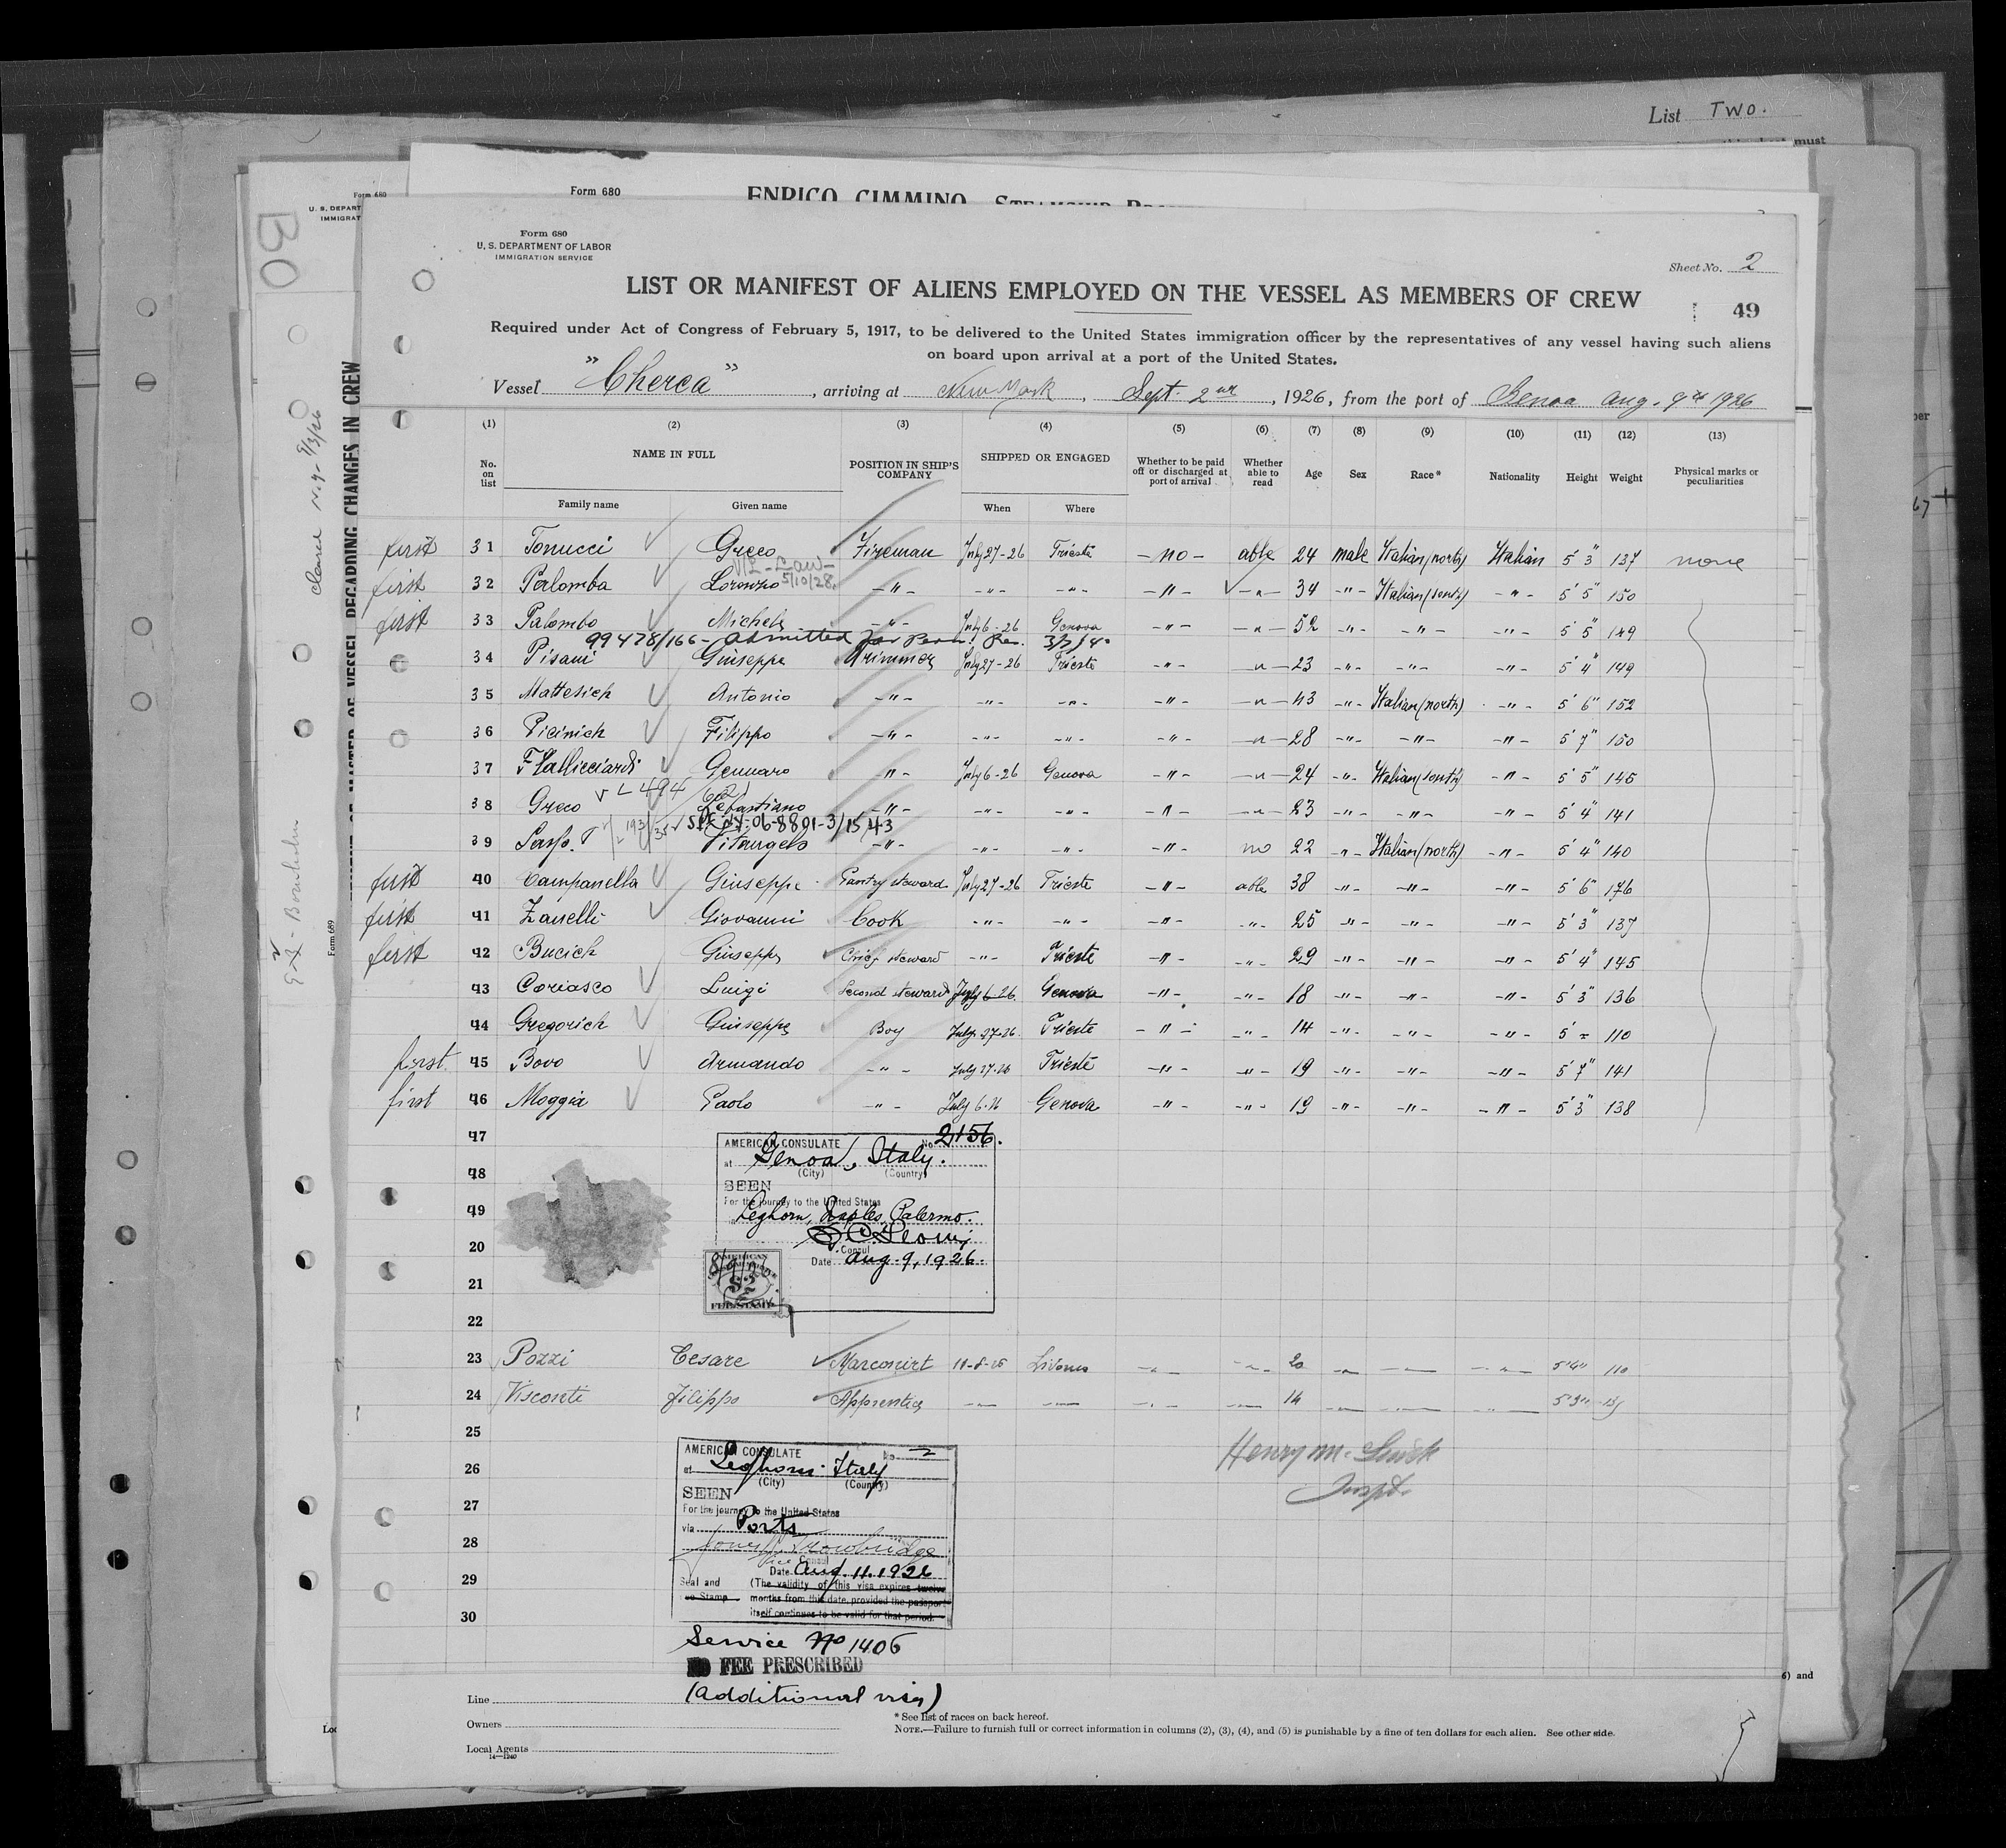 List TWO.
must
Form 680
U. S. DEPART
IMMIGRAT
Form 680
ENRICO CIMMINO, STEAMSHIP
BO
Form 680
U. S. DEPARTMENT OF LABOR
IMMIGRATION SERVICE
Sheet No. 2
LIST OR MANIFEST OF ALIENS EMPLOYED ON THE VESSEL AS MEMBERS OF CREW
49
Required under Act of Congress of February 5, 1917, to be delivered to the United States immigration officer by the representatives of any vessel having such aliens
on board upon arrival at a port of the United States.
Vessel "Cherca", arriving at New York, Sept. 2nd, 1926, from the port of Genoa Aug. 9th 1926
(1) (2) (3) (4) (5) (6) (7) (8) (9) (10) (11) (12) (13)
No. on list NAME IN FULL POSITION IN SHIP'S COMPANY SHIPPED OR ENGAGED Whether to be paid off or discharged at port of arrival Whether able to read Age Sex Race* Nationality Height Weight Physical marks or peculiarities
Family name Given name When Where
first 31 Tonucci Greco Fireman July 27-26 Trieste -no- able 24 male Italian (north) Italian 5' 3" 137 none
5/10/28
first 32 Palomba Lorenzo -"- -"- -"- -"- -"- 34 -"- Italian (south) -"- 5' 5" 150
first 33 Palombo Michele -"- July 6-26 Genova -"- -"- 52 -"- -"- -"- 5' 5" 149
99478/166 - Admitted for Perm. Res.
34 Pisani Giuseppe Trimmer July 27-26 Trieste -"- -"- 23 -"- -"- -"- 5' 4" 149
35 Mattesich Antonio -"- -"- -"- -"- -"- 43 -"- Italian (north) -"- 5' 6" 152
36 Picinich Filippo -"- -"- -"- -"- -"- 28 -"- -"- -"- 5' 7" 150
37 Gennaro -"- July 6-26 Genova -"- -"- 24 -"- Italian (south) -"- 5' 5" 145
38 Greco Sebastiano -"- -"- -"- -"- -"- 23 -"- -"- -"- 5' 4" 141
06-8801-3/15/43
39 Vitangelo -"- -"- -"- -"- no 22 -"- Italian (north) -"- 5' 4" 140
first 40 Campanella Giuseppe Pantry steward July 27-26 Trieste -"- able 38 -"- -"- -"- 5' 6" 176
first 41 Zanelli Giovanni Cook -"- -"- -"- -"- 25 -"- -"- -"- 5' 3" 137
first 42 Bucich Giuseppe Chief steward -"- Trieste -"- -"- 29 -"- -"- -"- 5' 4" 145
43 Coriasco Luigi Second steward July 6-26 Genova -"- -"- 18 -"- -"- -"- 5' 3" 136
44 Gregorich Giuseppe Boy July 27-26 Trieste -"- -"- 14 -"- -"- -"- 5' = 110
first 45 Bovo Armando -"- July 27-26 Trieste -"- -"- 19 -"- -"- -"- 5' 7" 141
first 46 Moggia Paolo -"- July 6-26 Genova -"- -"- 19 -"- -"- -"- 5' 3" 138
47
48
49
20
21
22
AMERICAN CONSULATE No. 2156.
at Genoa, Italy.
(City) (Country)
SEEN
For the journey to the United States
Leghorn, Naples, Palermo.
Consul
Date Aug. 9, 1926.
AMERICAN
FEE STAMP
23 Pozzi Cesare Marconist Livorno 20 5'4" 110
24 Visconti Filippo Apprentice 14
25
26
27
28
29
30
AMERICAN CONSULATE No. 2
at Leghorn Italy
(City) (Country)
SEEN
For the journey to the United States
via Ports
Vice Consul
Date Aug. 11. 1926
Seal and (The validity of this visa expires twelve
Stamp months from this date, provided the passport
itself continues to be valid for that period.
Service No 1406
NO FEE PRESCRIBED
(additional visa)
Henry M.
Inspt.
Line
Owners
Local Agents
14—1240
* See list of races on back hereof.
NOTE.—Failure to furnish full or correct information in columns (2), (3), (4), and (5) is punishable by a fine of ten dollars for each alien. See other side.
6) and
Form 689
VESSEL REGARDING CHANGES IN CREW